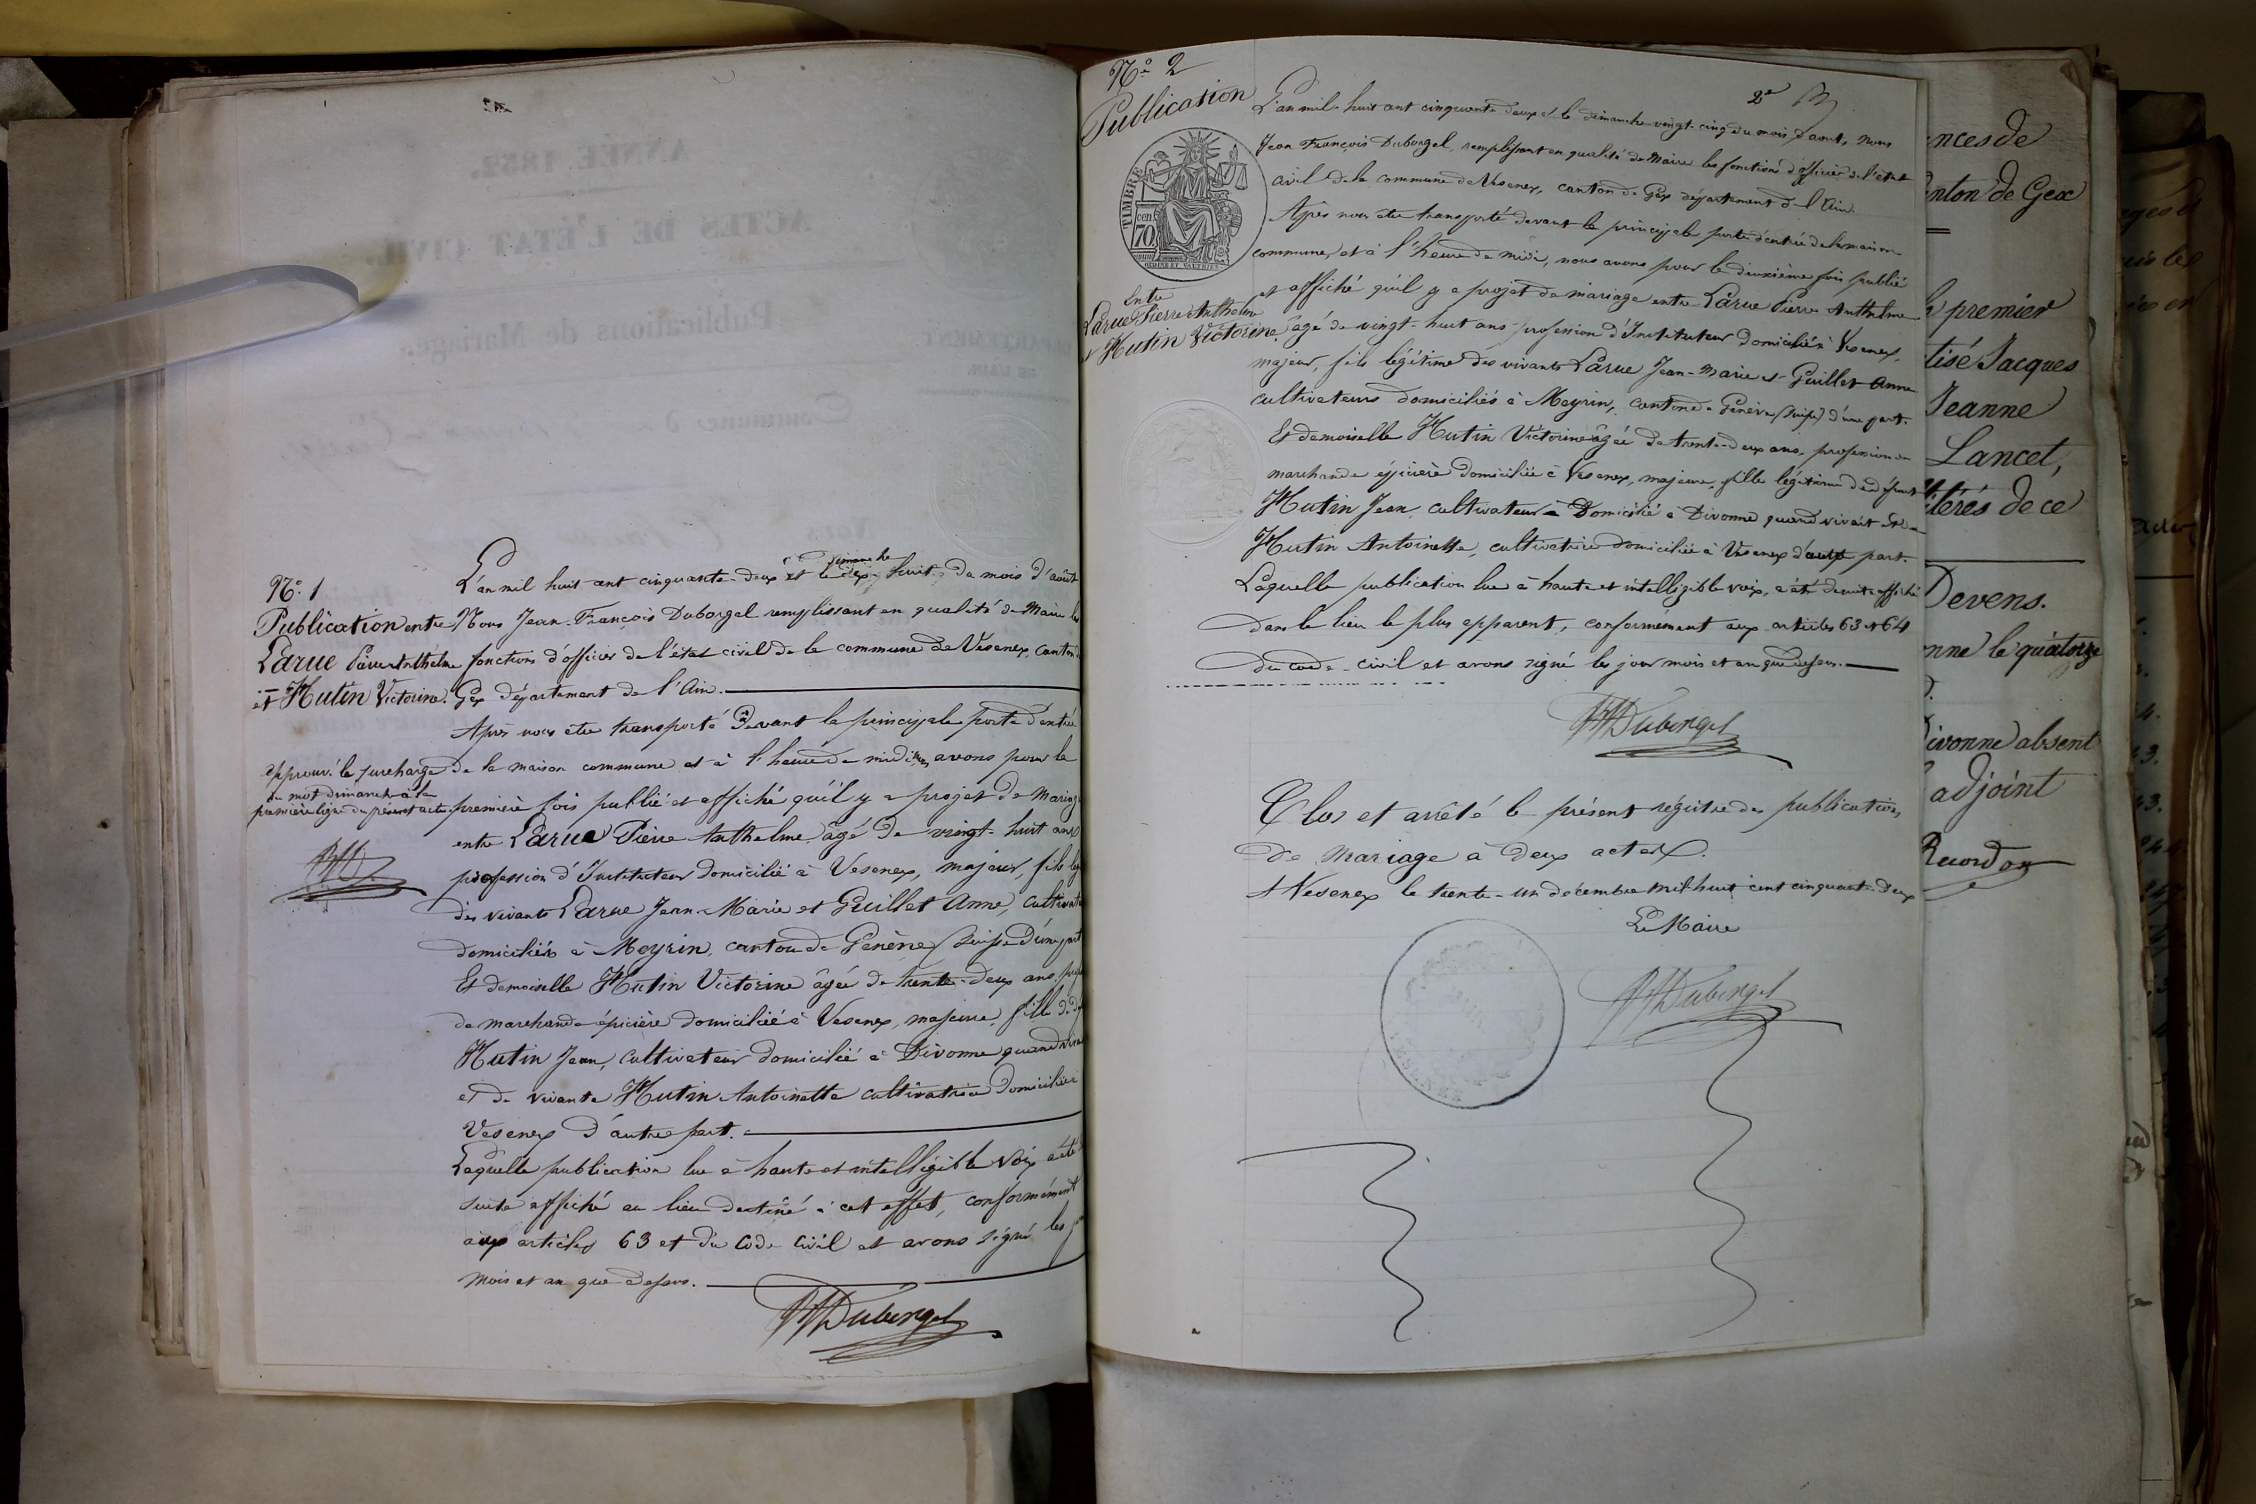 N° 1
Publication entre
Larue Pierre Anthelme
et Hutin Victorine.
approuvé la surcharge
du mot dimanche à la
première ligne du présent acte
L'an mil huit cent cinquante-deux et le dimanche dix-huit du mois d'août
Nous Jean-François Duborgel remplissant en qualité de Maire les
fonctions d'officier de l'état civil de la commune de Vesenex, canton de
Gex département de l'Ain.
Après nous être transporté devant la principale porte d'entrée
de la maison commune et à l'heure de midi, nous avons pour la
première fois publié et affiché qu'il y a projet de mariage
entre Larue Pierre Anthelme âgé de vingt-huit ans
profession d'Instituteur domicilié à Vesenex, majeur, fils lég
des vivants Larue Jean-Marie et Guillet Anne, cultivate
domiciliés à Meyrin, canton de Genève (Suisse) d'une part
Et demoiselle Hutin Victorine âgée de trente-deux ans, prof
de marchande épicière domiciliée à Vesenex, majeure, fille de d
Hutin Jean, cultivateur domicilié à Divonne quand viva
et de vivante Hutin Antoinette cultivatrice domiciliée
Vesenex d'autre part.
Laquelle publication lue à haute et intelligible voix a été
suite affiché au lieu destiné à cet effet, conformément
aux articles 63 et du Code Civil et avons signé les jo
mois et an que dessus.
Duborgel
N° 2
Publication
TIMBRE
70 cen
Entre
Larue Pierre Anthelme
et Hutin Victorine.
2e
L'an mil-huit cent cinquante deux et le dimanche vingt-cinq du mois d'aout, nous
Jean François Duborgel, remplissant en qualité de Maire les fonctions d'officier de l'état
civil de la commune de Vesenex, canton de Gex département de l'Ain.
Après nous être transporté devant la principale porte d'entrée de la maison
commune, et à l'heure de midi, nous avons pour la deuxième fois publié
et affiché qu'il y a projet de mariage entre Larue Pierre Anthelme
âgé de vingt-huit ans profession d'Instituteur domicilié à Vesenex,
majeur, fils légitime des vivants Larue Jean-Marie et Guillet Anne
cultivateurs domiciliés à Meyrin, canton de Genève (Suisse) d'une part.
Et demoiselle Hutin Victorine âgée de trente-deux ans, profession de
marchande épicière domiciliée à Vesenex, majeure, fille légitime de défunt
Hutin Jean, cultivateur domicilié à Divonne quand vivait et de
Hutin Antoinette, cultivatrice domiciliée à Vesenex d'autre part.
Laquelle publication lue à haute et intelligible voix, a été de suite affiché
dans le lieu le plus apparent, conformément aux articles 63 et 64
du code civil et avons signé les jour mois et an que dessus.
Duborgel
Clos et arrêté le présent régistre des publications
de mariage à deux actes.
A Vesenex le trente-un décembre mil-huit cent cinquante-deux
Le Maire
Duborgel
nces de
nton de Gex
premier
tisé Jacques
Jeanne
Lancet,
térés de ce
Devens.
nne le quatorze
Divonne absent
adjoint